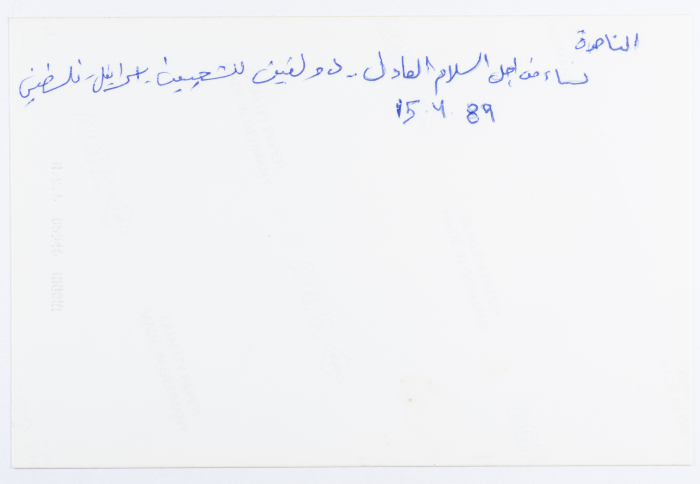 الناصرة
نساء من اجل السلام العادل .. دولتين للشعبين - اسرائيل - فلسطين
15.4.89